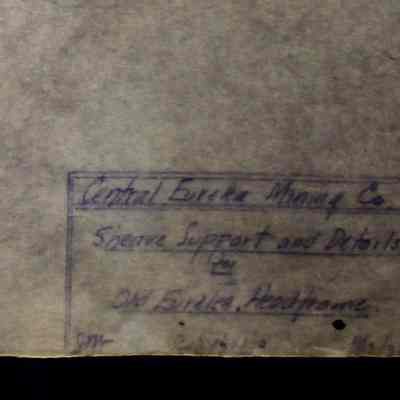 Central Eureka Mining Co.
Sheave Support and Details
for
Old Eureka Headframe.